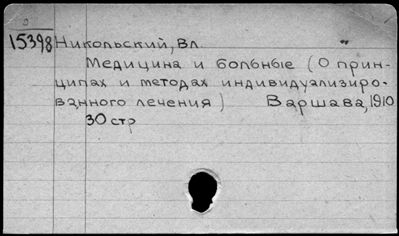 15398 Никольский, Вл.
Медицина и больные (О прин-
ципах и методах индивидуализиро-
ванного лечения) Варшава, 1910
30 стр